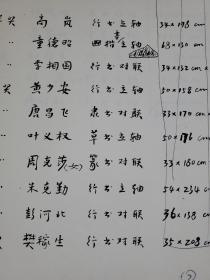 尚岚 行书立轴 34×178 cm
〃 童德昭 四楷立轴 68×130 cm
〃 李相国 行书对联 34×132 cm
黄少安 行书立轴 50×158 cm
〃 唐昌飞 隶书对联 33×178 cm
〃 叶义权 草书立轴 50×176 cm
〃 周克莎(女) 篆书对联 33×180 cm
〃 朱克勤 行书立轴 54×234 cm
彭河北 行书对联 36×138 cm
樊稼生 行书对联 35×208 cm